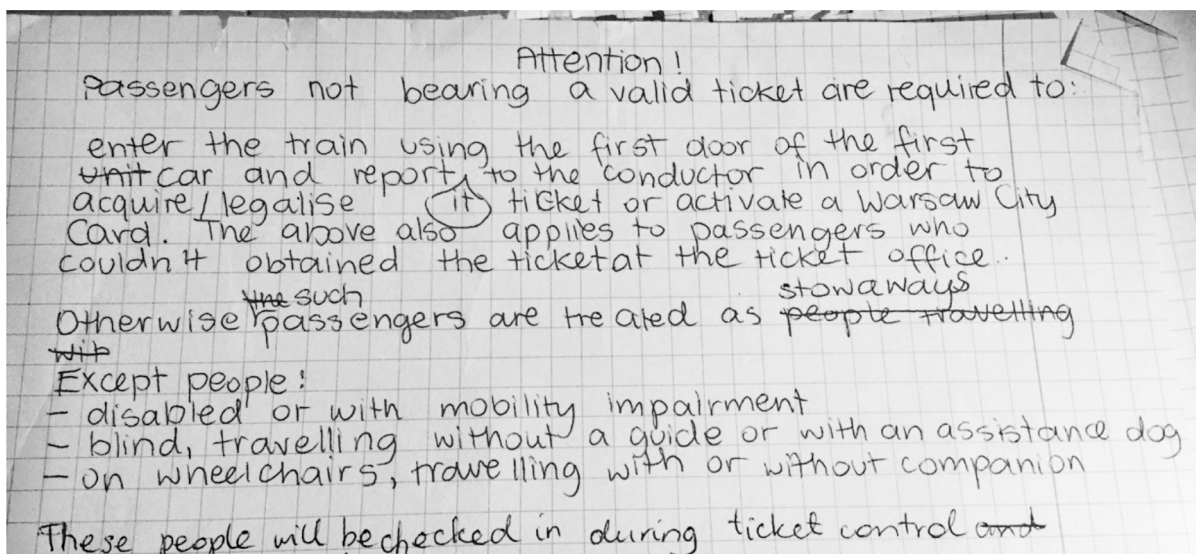 Attention!
Passengers not bearing a valid ticket are required to:
enter the train using the first door of the first
unit car and report to the conductor in order to
acquire/legalise it ticket or activate a Warsaw City
Card. The above also applies to passengers who
couldn't obtained the ticket at the ticket office..
the such stowaways
Otherwise passengers are treated as people travelling
with
Except people:
- disabled or with mobility impairment
- blind, travelling without a guide or with an assistance dog
- on wheelchairs, travelling with or without companion
These people will be checked in during ticket control and